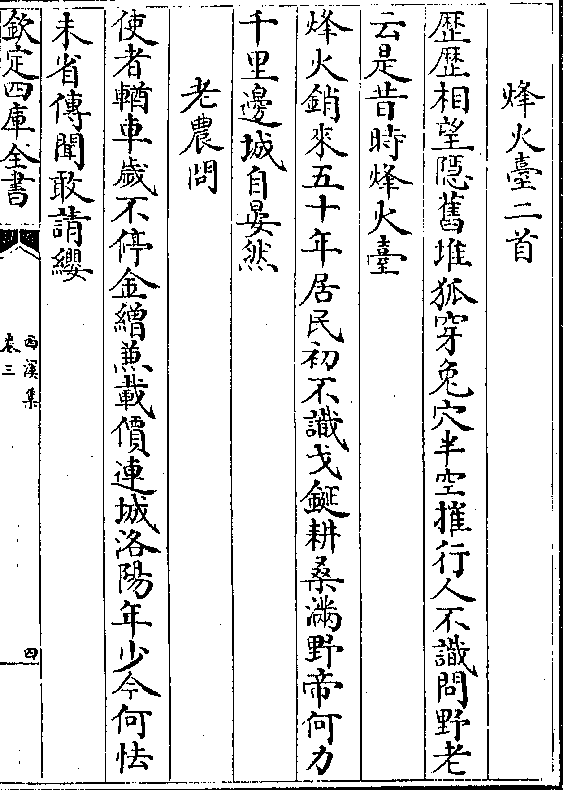 烽火臺二首
歴歴相望隱舊堆狐穿兔穴半空摧行人不識問野老
云是昔時烽火臺
烽火銷來五十年居民初不識戈鋋耕桑滿野帝何力
千里邊城自晏然
老農問
使者輶車歳不停金繒兼載價連城洛陽年少今何怯
未省傳聞敢請纓
欽定四庫全書
西溪集
卷三
四